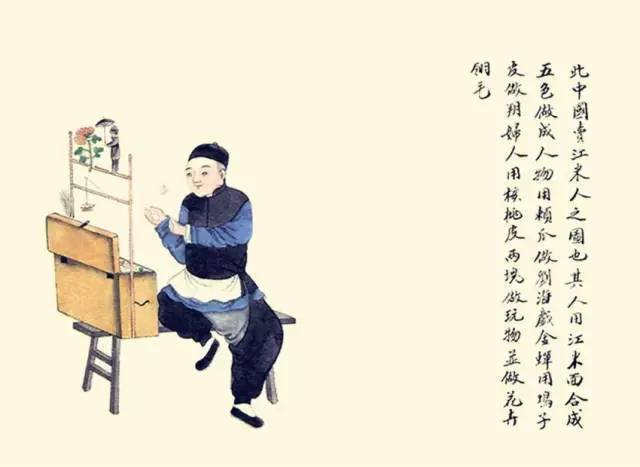 此中國賣江米人之圖也其人用江米面合成
五色做成人物用賴瓜做劉海戲金蟬用塢子
皮做朔婦人用核桃皮兩塊做玩物並做花卉
翎毛